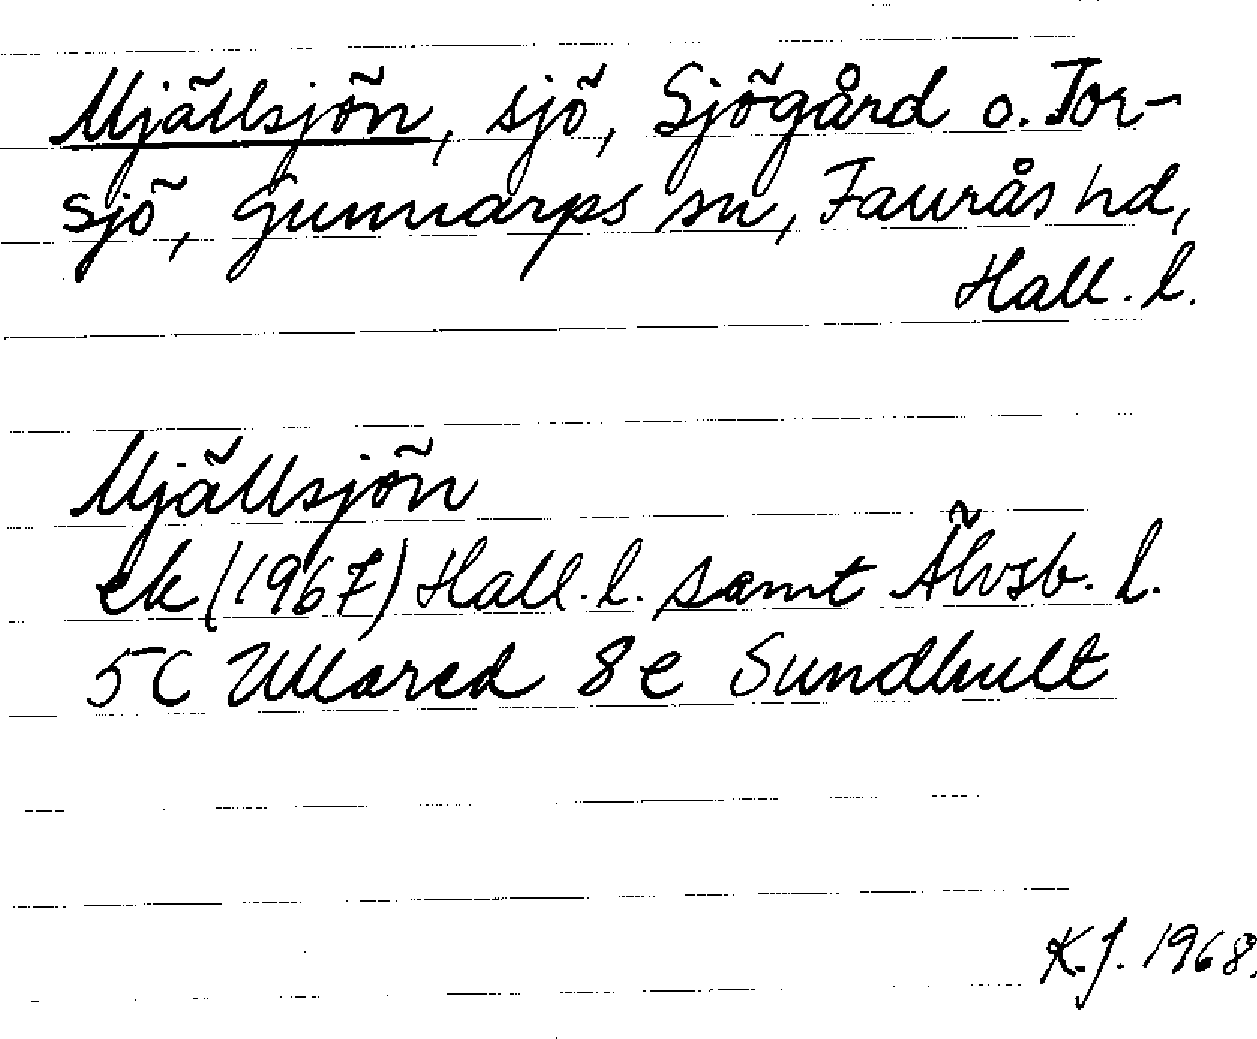 Mjällsjön, sjö, Sjögård o. Tor-
sjö, Gunnarps sn, Faurås hd,
Hall. l.
Mjällsjön
ek (1967) Hall. l. samt Älvsb. l.
5C Ullared 8e Sundhult
K.J. 1968.